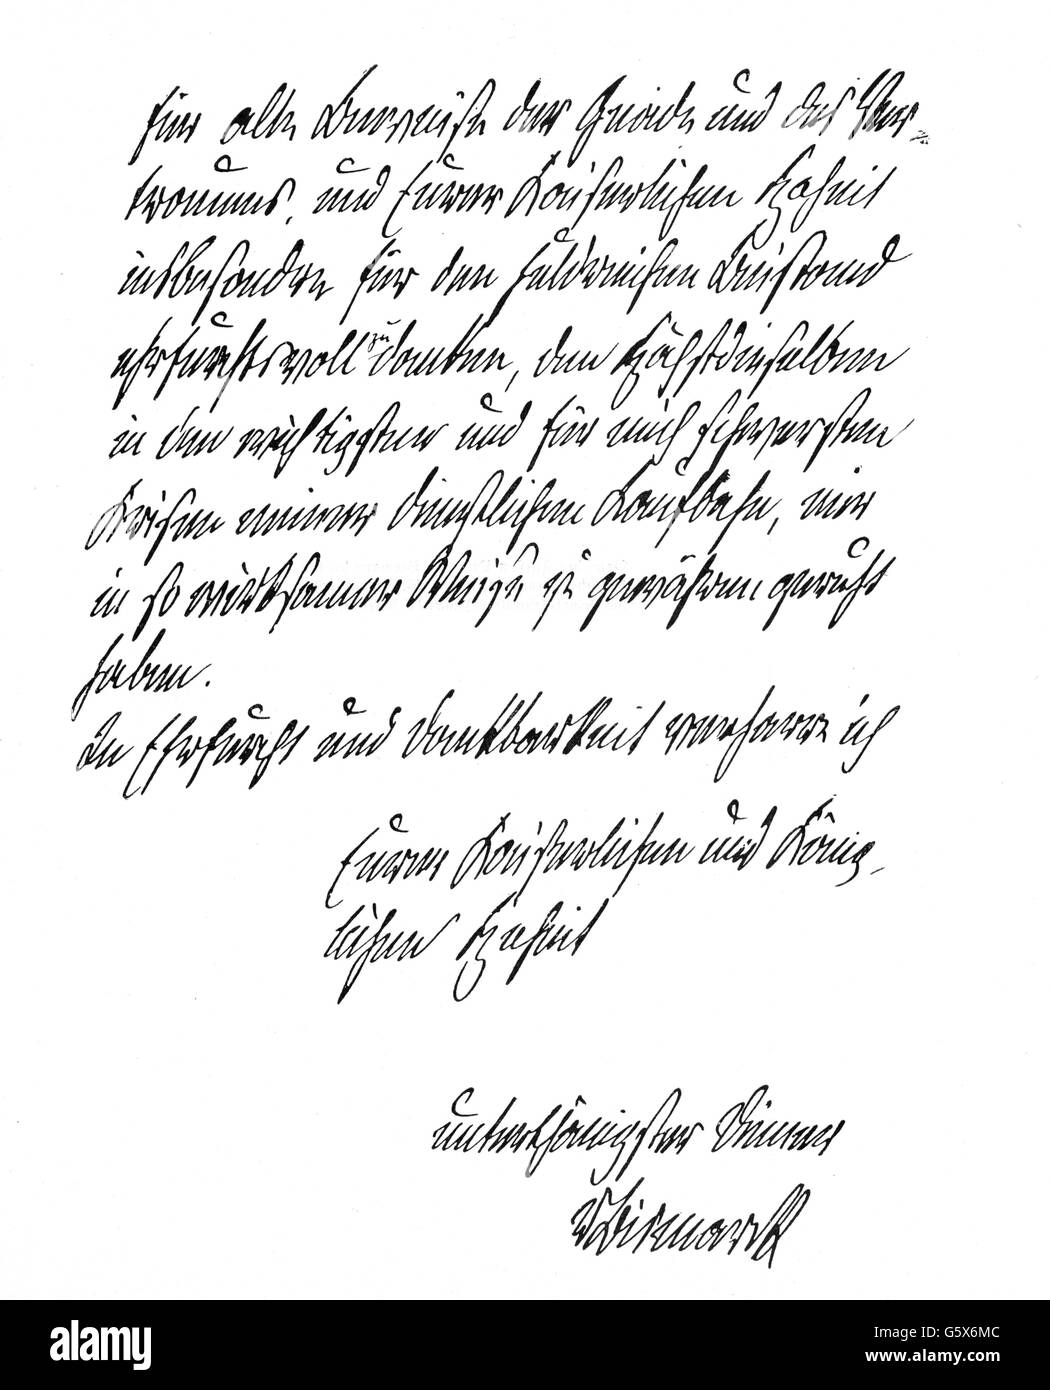 für alle Beweise der Gnade und des Ver-
trauens, und Eurer Kaiserlichen Hoheit
insbesondre für den huldreichen Beistand
ehrfurchtsvoll zu danken, den Höchstdieselben
in den wichtigsten und für mich schwersten
Krisen meiner dienstlichen Laufbahn, mir
in so wirksamer Weise zu gewähren geruht
haben.
In Ehrfurcht und Dankbarkeit verharre ich
Eurer Kaiserlichen und König-
lichen Hoheit
unterthänigster Diener
vBismarck
alamy
Image ID: G5X6MC
www.alamy.com